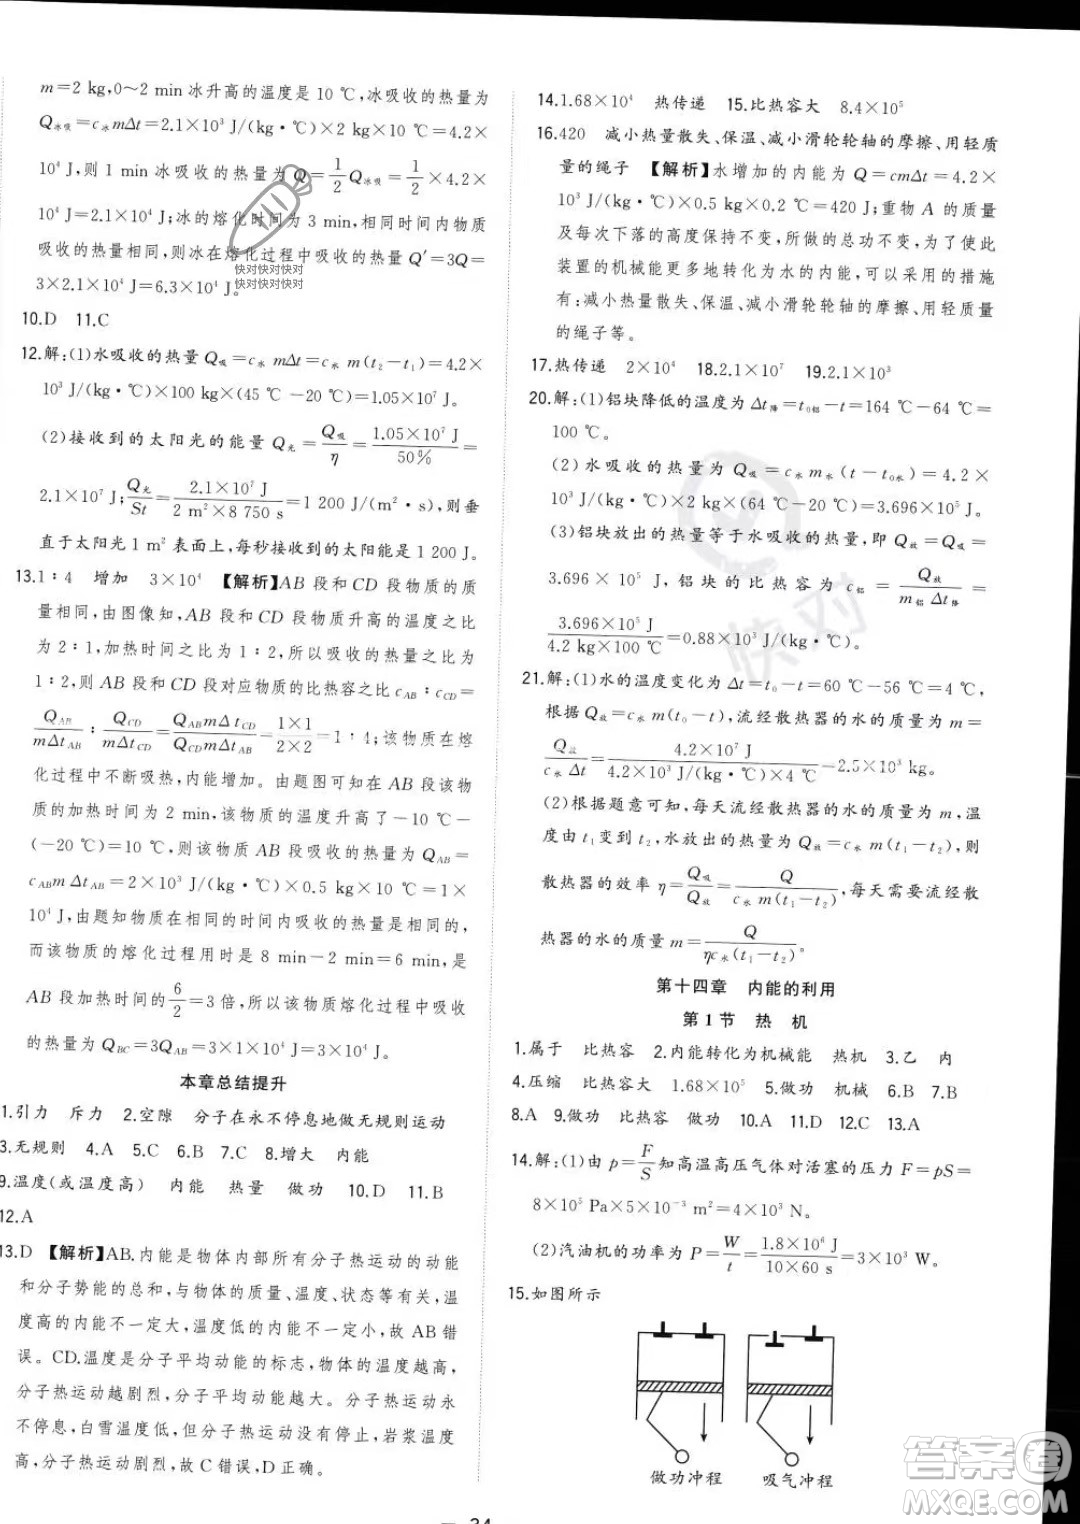 m＝2 kg,0～2 min 冰升高的温度是 10 ℃,冰吸收的热量为
Q冰吸＝c冰mΔt＝2.1×10³ J/(kg·℃)×2 kg×10 ℃＝4.2×
10⁴ J,则 1 min 冰吸收的热量 Q＝1/2 Q冰吸＝1/2×4.2×
10⁴ J＝2.1×10⁴ J;冰的熔化时间为 3 min,相同时间内物质
吸收的热量相同,则冰在熔化过程中吸收的热量 Q′＝3Q＝
3×2.1×10⁴ J＝6.3×10⁴ J。
10.D 11.C
12.解:(1)水吸收的热量 Q吸＝c水 mΔt＝c水 m(t₂－t₁)＝4.2×
10³ J/(kg·℃)×100 kg×(45 ℃－20 ℃)＝1.05×10⁷ J。
(2)接收到的太阳光的能量 Q光＝Q吸/η＝1.05×10⁷ J/50%＝
2.1×10⁷ J;Q光/St＝2.1×10⁷ J/(2 m²×8 750 s)＝1 200 J/(m²·s),则垂
直于太阳光 1 m² 表面上,每秒接收到的太阳能量为 1 200 J。
13.1∶4 增加 3×10⁴ 【解析】AB 段和 CD 段物质的质
量相同,由图像知,AB 段和 CD 段物质升高的温度之比
为 2∶1,加热时间之比为 1∶2,所以吸收的热量之比为
1∶2,则 AB 段和 CD 段对应物质的比热容之比 cAB∶cCD＝
QAB/mΔtAB∶QCD/mΔtCD＝QABmΔtCD/QCDmΔtAB＝1×1/2×2＝1∶4;该物质在熔
化过程中不断吸热,内能增加。由题图可知,AB 段物
质的加热时间为 2 min,该物质的温度升高了－10 ℃－
(－20 ℃)＝10 ℃,则该物质 AB 段吸收的热量 QAB＝
cABmΔtAB＝2×10³ J/(kg·℃)×0.5 kg×10 ℃＝1×
10⁴ J,由题知物质在相同的时间内吸收的热量是相同的,
而该物质的熔化过程用时是 8 min－2 min＝6 min,是
AB 段加热时间的 6/2＝3 倍,所以该物质熔化过程中吸收
的热量为 QBC＝3QAB＝3×1×10⁴ J＝3×10⁴ J。
本章总结提升
1.引力 斥力 2.空隙 分子在永不停息地做无规则运动
3.无规则 4.A 5.C 6.B 7.B 8.增大 内能
9.温度(或温度高) 内能 热量 做功 10.D 11.B
12.A
13.D 【解析】AB.内能是物体内部所有分子热运动的动能
和分子势能的总和,与物体的质量、温度、状态等有关,温
度高的内能不一定大,温度低的内能不一定小,故 AB 错
误。CD.温度是分子平均动能的标志,物体的温度越高,
分子热运动越剧烈,分子平均动能越大。分子热运动永
不停息,白雪温度低,分子热运动不会停止,岩浆温度
高,分子热运动剧烈,故 C 错误,D 正确。
14.1.68×10⁴ 热传递 15.比热容大 8.4×10⁵
16.420 减小热量散失、保温、减小滑轮轮轴的摩擦、用轻质
量的绳子 【解析】水增加的内能为 Q＝cmΔt＝4.2×
10³ J/(kg·℃)×0.5 kg×0.2 ℃＝420 J;重物 A 的质量
及每次下落的高度保持不变,所做的总功不变,为了使此
装置的机械能更多地转化为水的内能,可采用的措施
有:减小热量散失、保温、减小滑轮轮轴的摩擦、用轻质量
的绳子等。
17.热传递 2×10⁴ 18.2.1×10⁷ 19.2.1×10³
20.解:(1)铝块降低的温度为 Δt降＝t₀铝－t＝164 ℃－64 ℃＝
100 ℃。
(2)水吸收的热量为 Q吸＝c水 m水(t－t₀水)＝4.2×
10³ J/(kg·℃)×2 kg×(64 ℃－20 ℃)＝3.696×10⁵ J。
(3)铝块放出的热量等于水吸收的热量,即 Q放＝Q吸＝
3.696×10⁵ J,铝块的比热容为 c铝＝Q放/m铝 Δt降＝
3.696×10⁵ J/4.2 kg×100 ℃＝0.88×10³ J/(kg·℃)。
21.解:(1)水的温度变化为 Δt＝t₀－t＝60 ℃－56 ℃＝4 ℃,
根据 Q放＝c水 m(t₀－t),流经散热器的水的质量 m＝
Q放/c水 Δt＝4.2×10⁷ J/4.2×10³ J/(kg·℃)×4 ℃＝2.5×10³ kg。
(2)根据题意可知,每天流经散热器的水的质量为 m,温
度由 t₁变到 t₂,水放出的热量为 Q放＝c水 m(t₁－t₂),则
散热器的效率 η＝Q吸/Q放＝Q/c水 m(t₁－t₂),每天需要流经散
热器的水的质量 m＝Q/ηc水(t₁－t₂)。
第十四章 内能的利用
第 1 节 热 机
1.属于 比热容 2.内能转化为机械能 热机 3.乙 内
4.压缩 比热容大 1.68×10⁵ 5.做功 机械 6.B 7.B
8.A 9.做功 比热容 做功 10.A 11.D 12.C 13.A
14.解:(1)由 p＝F/S知高温高压气体对活塞的压力 F＝pS＝
8×10⁵ Pa×5×10⁻³ m²＝4×10³ N。
(2)汽油机的功率为 P＝W/t＝1.8×10⁶ J/10×60 s＝3×10³ W。
15.如图所示
做功冲程 吸气冲程
34
快对快对快对
快对快对快对
快对
答案圈
MXQE.COM